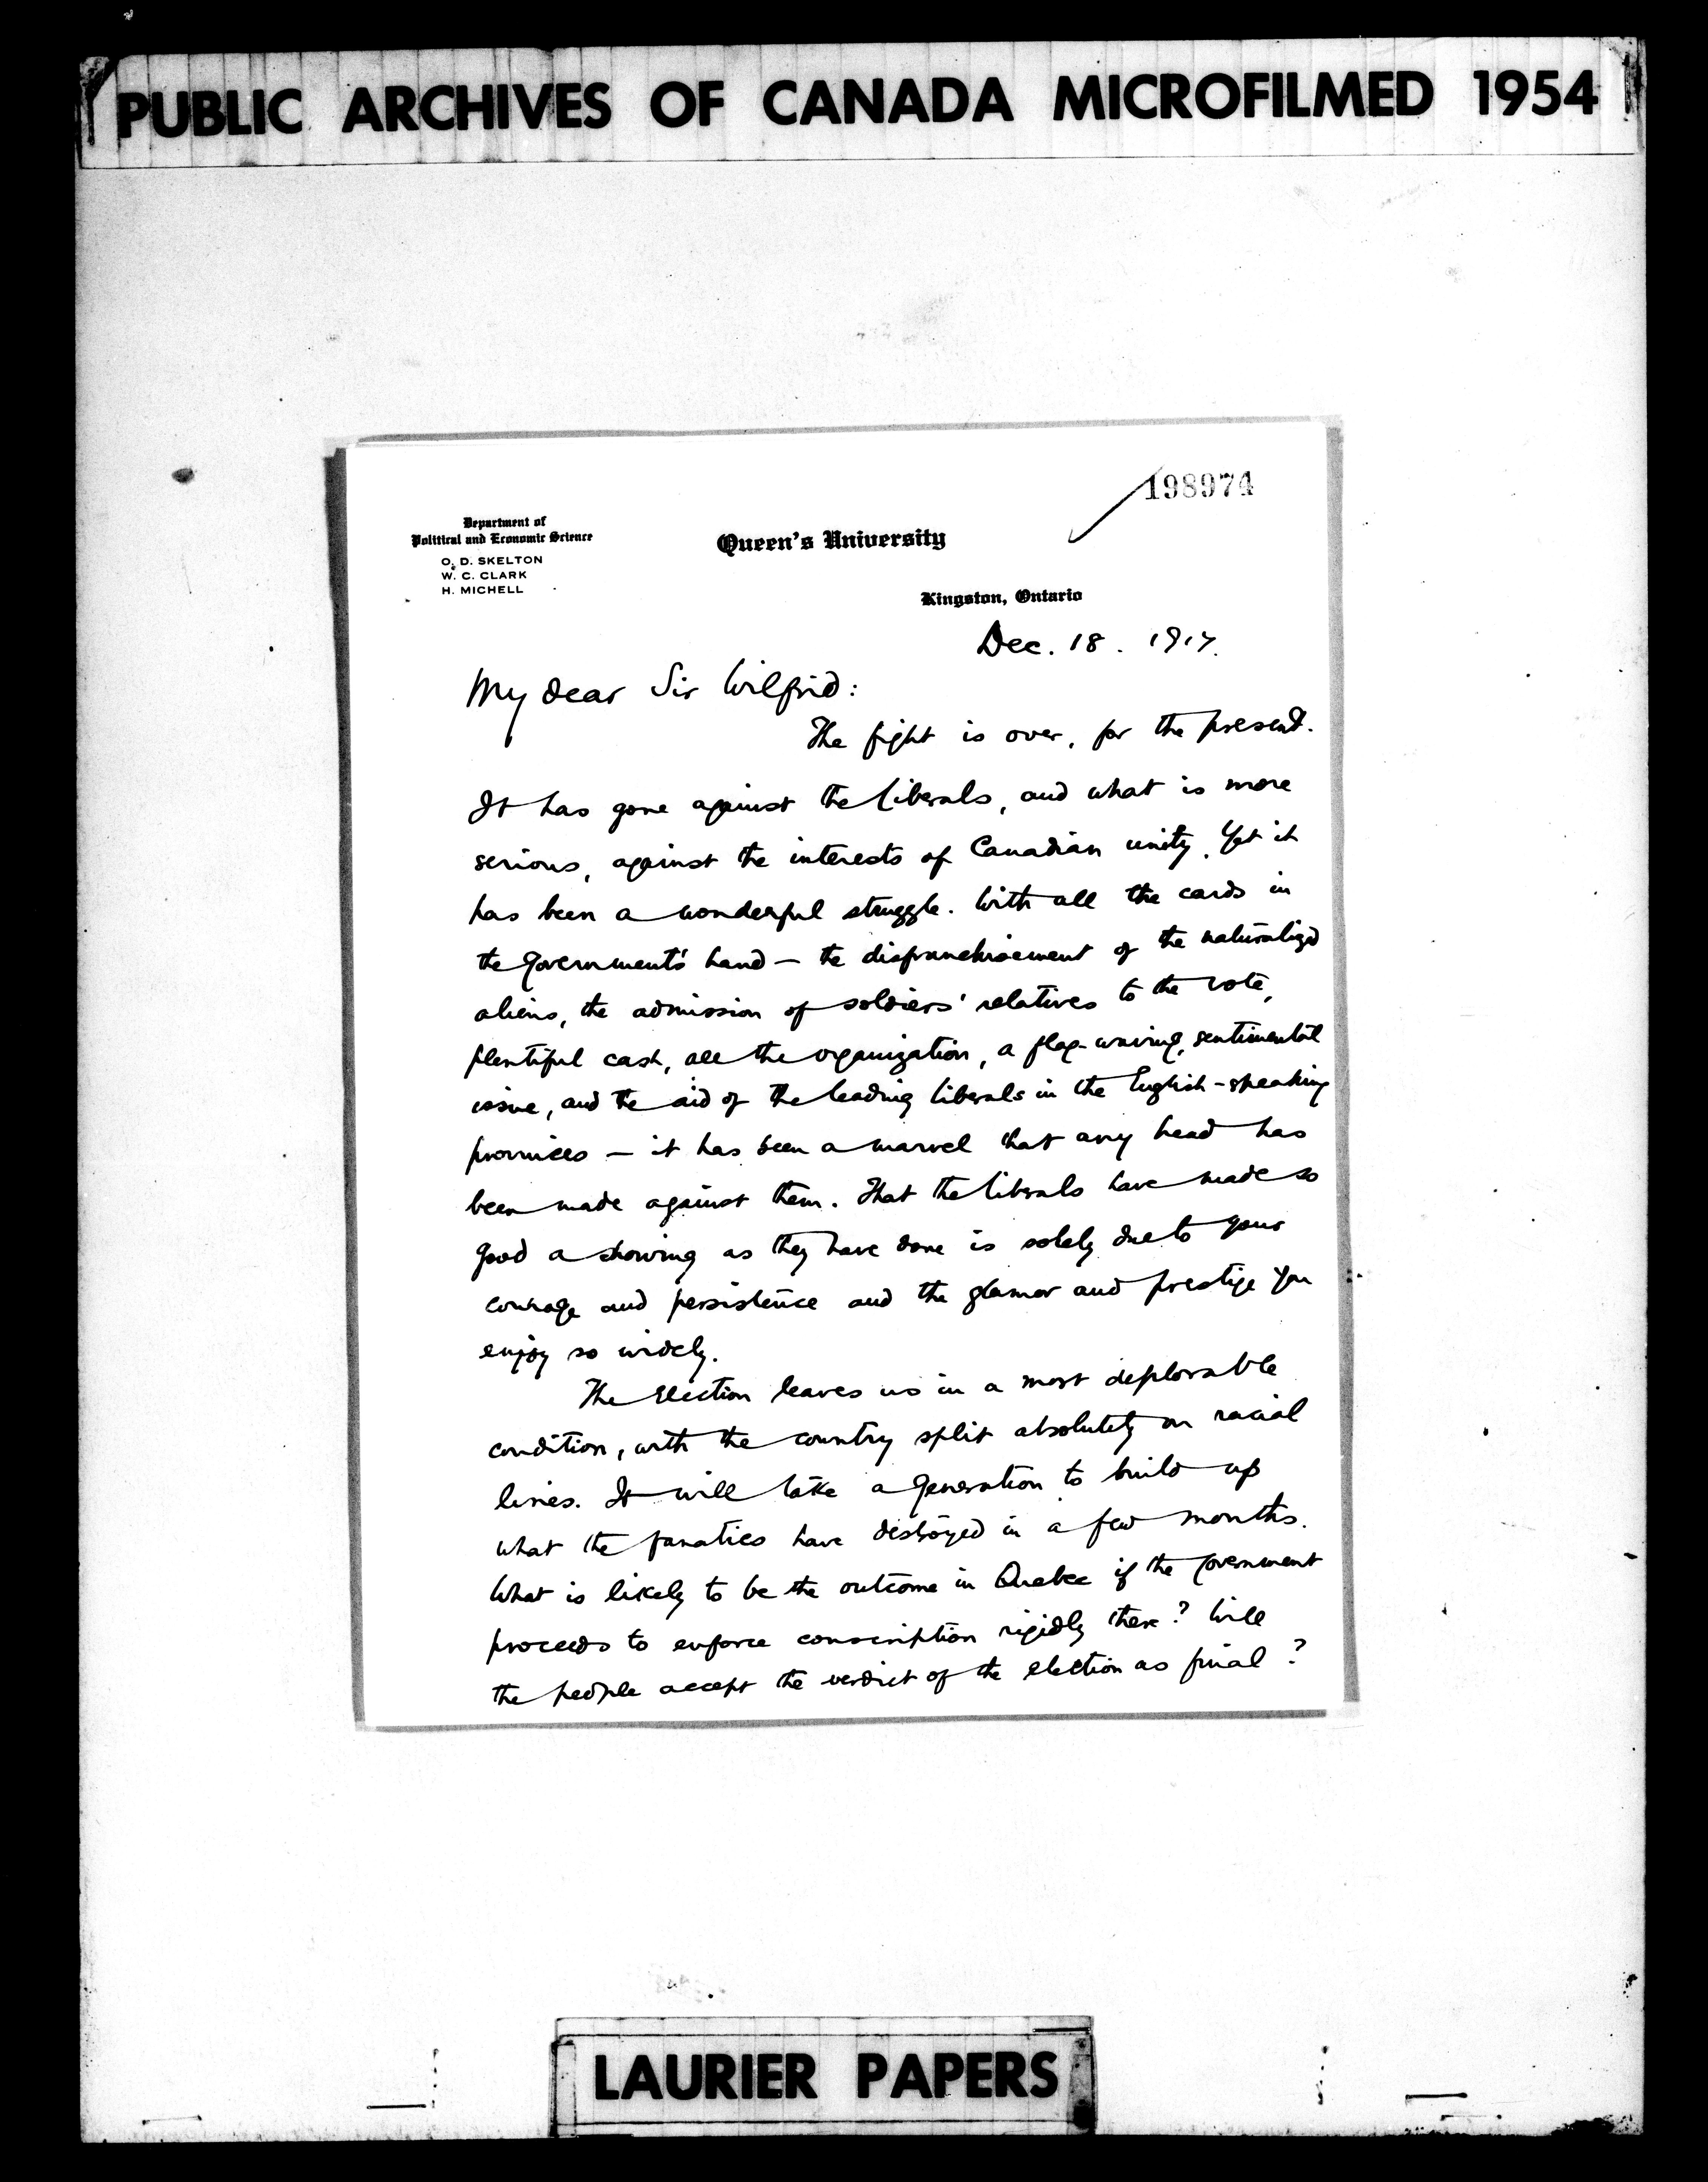 PUBLIC ARCHIVES OF CANADA MICROFILMED 1954
198974
Department of
Political and Economic Science
O. D. SKELTON
W. C. CLARK
H. MICHELL
Queen's University
Kingston, Ontario
Dec. 18. 1917.
My dear Sir Wilfrid:
The fight is over, for the present.
It has gone against the Liberals, and what is more
serious, against the interests of Canadian unity. Yet it
has been a wonderful struggle. With all the cards in
the Government's hand — the disfranchisement of the naturalized
aliens, the admission of soldiers' relatives to the vote,
plentiful cash, all the organization, a flag-waving, sentimental
issue, and the aid of the leading Liberals in the English-speaking
provinces — it has been a marvel that any head has
been made against them. That the Liberals have made so
good a showing as they have done is solely due to your
courage and persistence and the glamor and prestige you
enjoy so widely.
The election leaves us in a most deplorable
condition, with the country split absolutely on racial
lines. It will take a generation to build up
what the fanatics have destroyed in a few months.
What is likely to be the outcome in Quebec if the Government
proceeds to enforce conscription rigidly there? Will
the people accept the verdict of the election as final?
LAURIER PAPERS